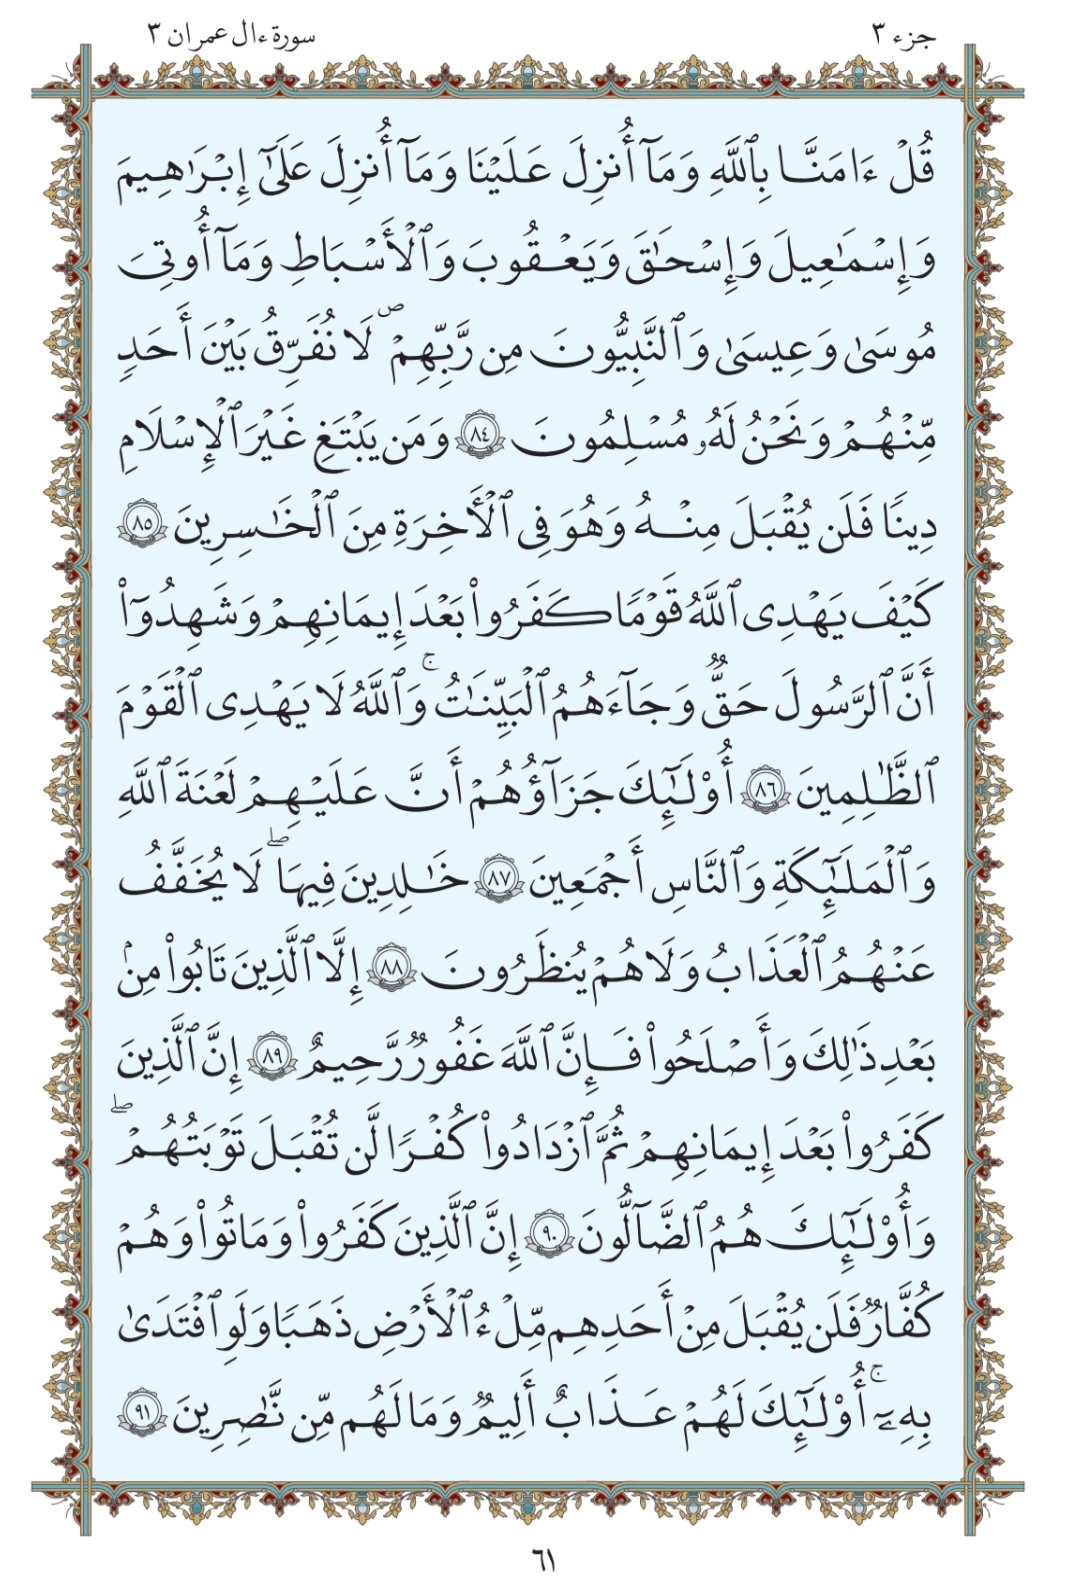 جزء ٣
سورة ءال عمران ٣
قُلْ ءَامَنَّا بِٱللَّهِ وَمَآ أُنزِلَ عَلَيْنَا وَمَآ أُنزِلَ عَلَىٰٓ إِبْرَٰهِيمَ
وَإِسْمَٰعِيلَ وَإِسْحَٰقَ وَيَعْقُوبَ وَٱلْأَسْبَاطِ وَمَآ أُوتِىَ
مُوسَىٰ وَعِيسَىٰ وَٱلنَّبِيُّونَ مِن رَّبِّهِمْ ۖ لَا نُفَرِّقُ بَيْنَ أَحَدٍ
مِّنْهُمْ وَنَحْنُ لَهُۥ مُسْلِمُونَ ٨٤ وَمَن يَبْتَغِ غَيْرَ ٱلْإِسْلَامِ
دِينًا فَلَن يُقْبَلَ مِنْهُ وَهُوَ فِى ٱلْأَخِرَةِ مِنَ ٱلْخَٰسِرِينَ ٨٥
كَيْفَ يَهْدِى ٱللَّهُ قَوْمًا كَفَرُوا۟ بَعْدَ إِيمَانِهِمْ وَشَهِدُوٓا۟
أَنَّ ٱلرَّسُولَ حَقٌّ وَجَآءَهُمُ ٱلْبَيِّنَٰتُ ۚ وَٱللَّهُ لَا يَهْدِى ٱلْقَوْمَ
ٱلظَّٰلِمِينَ ٨٦ أُو۟لَٰٓئِكَ جَزَآؤُهُمْ أَنَّ عَلَيْهِمْ لَعْنَةَ ٱللَّهِ
وَٱلْمَلَٰٓئِكَةِ وَٱلنَّاسِ أَجْمَعِينَ ٨٧ خَٰلِدِينَ فِيهَا ۖ لَا يُخَفَّفُ
عَنْهُمُ ٱلْعَذَابُ وَلَا هُمْ يُنظَرُونَ ٨٨ إِلَّا ٱلَّذِينَ تَابُوا۟ مِنۢ
بَعْدِ ذَٰلِكَ وَأَصْلَحُوا۟ فَإِنَّ ٱللَّهَ غَفُورٌ رَّحِيمٌ ٨٩ إِنَّ ٱلَّذِينَ
كَفَرُوا۟ بَعْدَ إِيمَانِهِمْ ثُمَّ ٱزْدَادُوا۟ كُفْرًا لَّن تُقْبَلَ تَوْبَتُهُمْ ۖ
وَأُو۟لَٰٓئِكَ هُمُ ٱلضَّآلُّونَ ٩٠ إِنَّ ٱلَّذِينَ كَفَرُوا۟ وَمَاتُوا۟ وَهُمْ
كُفَّارٌ فَلَن يُقْبَلَ مِنْ أَحَدِهِم مِّلْءُ ٱلْأَرْضِ ذَهَبًا وَلَوِ ٱفْتَدَىٰ
بِهِۦٓ ۚ أُو۟لَٰٓئِكَ لَهُمْ عَذَابٌ أَلِيمٌ وَمَا لَهُم مِّن نَّٰصِرِينَ ٩١
٦١